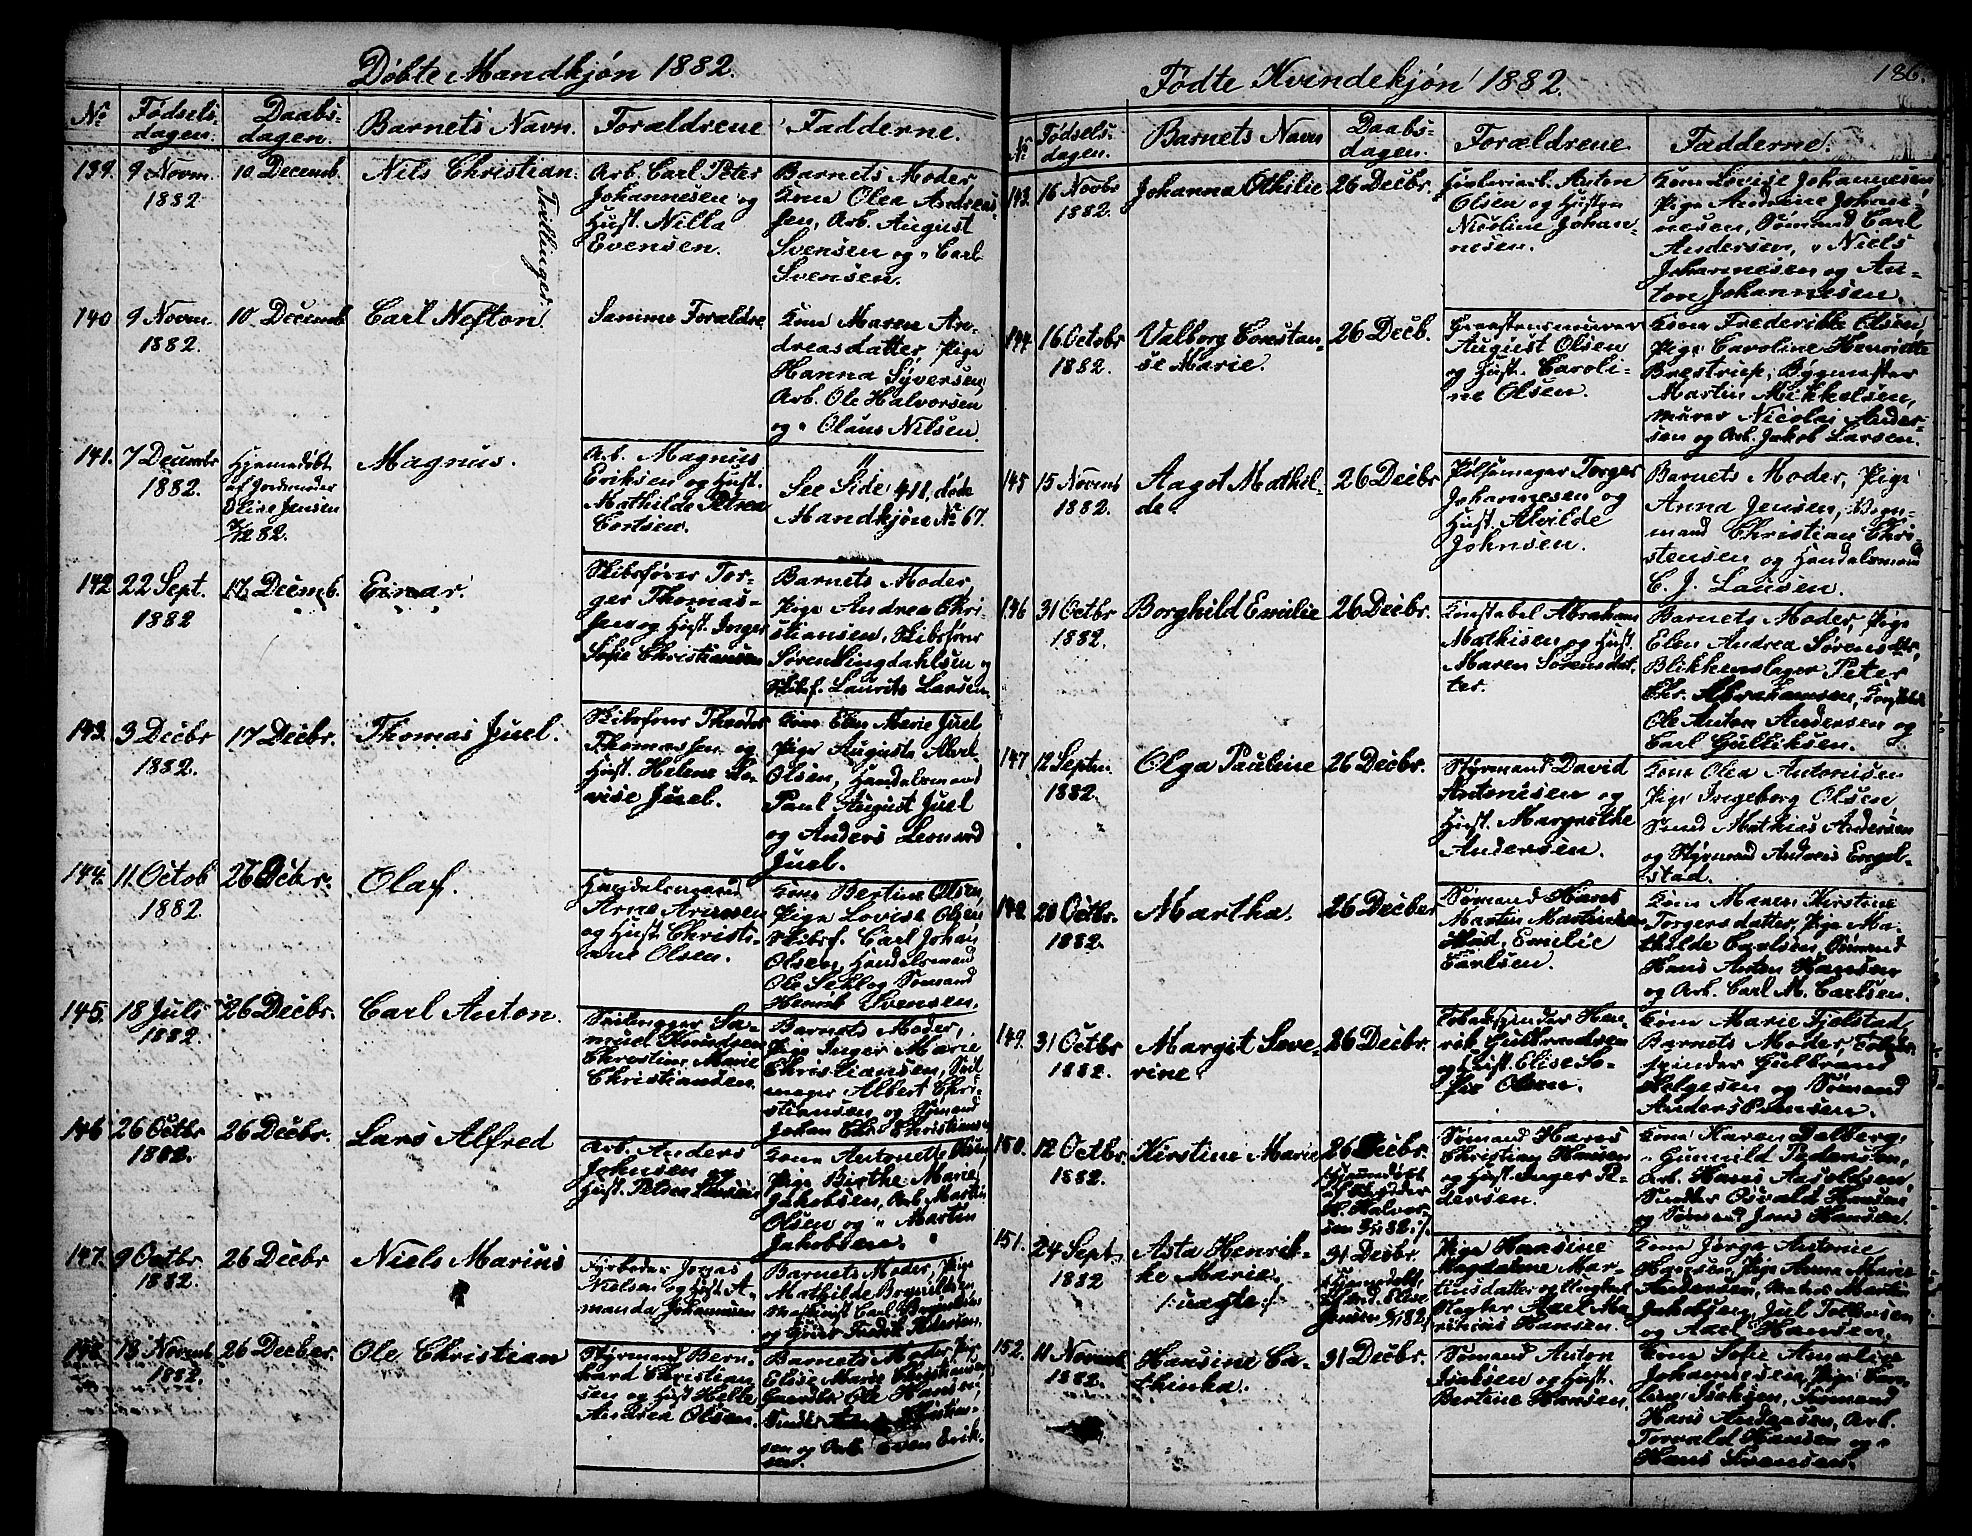 Døbte Mandkjøn 1882.
No Fødselsdagen. Daabsdagen. Barnets Navn. Forældrene Fadderne.
139. 9 Novm. 1882 10 Decemb. Nils Christian. Tvillinger.
Arb. Carl Peter
Johannesen og
Hust. Nilla
Evensen.
Barnets Moder,
Kone Olea Andrea-
sen, Arb. August
Svensen og " Carl
Svensen.
140 9 Novm. 1882. 10 Decemb Carl Nefton.
Samme Forældre
Kone Maren An-
dreasdatter, Pige
Hanna Syversen,
Arb. Ole Halvorsen
og " Olaus Nilsen.
141. 7 Decembr 1882. Hjemmedøbt
af Jordmoder
Elise Jensen
82.
Magnus.
Arb. Magnus
Eriksen og Hust.
Mathilde Petrea
Cortsen.
"
See Side 411, døde
Mandkjøn No 67.
142 22 Sept. 1882 17 Decemb. Einar.
Skibsfører Tor-
ger Thomas-
sen og Hust. Inger
Sofie Christiansen
Barnets Moder,
Pige Andrea Chri-
stiansen, Skibsfører
Søren Lingdahlsen og
Skibsf. Laurits Larsen.
143. 3 Decbr 1882. 17 Decbr. Thomas Juel.
Skibsfører Theodor
Thomassen og
Hust. Helene Lo-
vise Juel.
Kone Elen Marie Juel
Pige Augusta Alvil.
Olsen, Handelsmand
Paul August Juel
og Anders Leonard
Juel.
144. 11 Octob 1882. 26 Decbr. Olaf.
Handelsmand
Arne Arnesen
og Hust. Christi-
ane Olsen.
Kone Bertine Olsen,
Pige Lovise Olsen
Skibsf. Carl Johan
Olsen, Handelsmand
Ole Sekl og Sømand
Henrik Svensen.
145. 18 Juli 1882. 26 Decbr. Carl Anton.
Seilmager Sa-
muel Knudsen
Christine Marie
Christiansen.
Barnets Moder,
Pige Inger Marie
Christiansen, Seil-
mager Albert Chri-
stiansen og Sømand
Johan Chr. Christiansen
146 26 Octbr 1882. 26 Decbr. Lars Alfred
Arb. Anders
Johnsen og
Hust. Petrea Larsen
Kone Antonette Olsen
Pige Birthe Marie
Jakobsen, Arb. Martin
Olsen og " Martin
Jakobsen.
147. 9 Octbr 1882. 26 Decbr Niels Marius
Fyrbøder Jørgas
Nielsen og Hust. A-
manda Johannesen
Barnets Moder, Pige
Mathilde Brynildsen
Maskinist Carl Brynildsen
og Fredrik Pedersen.
148. 13 Novmb 1882. 26 Decber. Ole Christian
Styrmand Bern-
hard Christian
sen og Hust Helle
Andrea Olsen.
Barnets Moder, Pige
Elise Marie Christiansen,
Ole Hansen
Christian-
sen og Arb. Even Erik-
sen.
Fødte Kvindekjøn 1882.
186.
No Fødselsdagen. Barnets Navn Daabsdagen. Forældrene. Fadderne.
143. 16 Novbr 1882. Johanna Othilie 26 Decbr.
Anton
Olsen og Hustru
Nicoline Johan-
nesen.
Kone Lovise Johannesen,
Pige Andrine Johan-
nesen, Sømand Carl
Andersen, " Niels
Johannesen og An-
ton Johannesen.
144 16 Octobr 1882. Valborg Constan-
se Marie. 26 Decb.
Graastensmurer
August Olsen
og Hust. Caroli-
ne Olsen.
Kone Frederikke Olsen,
Pige Caroline Henriette
Brestrup, Bygmester
Martin Mikkelsen,
Murer Nicolai Ander-
sen og Arb. Jakob Larsen.
145 15 Novmb 1882. Aagot Mathil-
de. 26 Decbr
Pølsemager Torger
Johannesen og
Hust. Alvilde
Johnsen.
Barnets Moder, Pige
Anna Jensen, Bom-
mand Christian Chri-
stensen og Handelsmand
C. J. Lausen.
146 31 Octbr 1882. Borghild Emilie 26 Decbr.
Konstabel Abraham
Mathisen og Hust.
Maren Sørensdat-
ter.
Barnets Moder, Pige
Elen Andrea Sørensdtr,
Blikkenslager Peter
Chr. Abrahamsen, Konstabel
Ole Anton Andersen og
Carl Gulliksen.
147 12 Septm. 1882. Olga Pauline 26 Decbr.
Styrmand David
Antonisen og
Hust. Margrethe
Andersen.
Kone Olea Antonisen
Pige Ingeborg Olsen,
Smed Mathias Andersen
og Styrmand Andreas Engel-
stad.
148. 20 Octbr. 1882. Martha. 26 Decber
Sømand Hans
Martin Martinsen
Hust. Emelie
Carlsen.
Kone Maren Kirstine
Torgersdatter, Pige Ma-
thilde Carlsen, Sømand
Hans Anton Hansen
og Arb. Carl M. Carlsen.
149. 31 Octbr 1882. Margit Seve-
rine. 26 Decbr.
Tobaksspinder Hen-
rik Gulbrandsen
og Hust. Elise So-
fie Olsen.
Kone Marie Fjelstad,
Barnets Moder, Tobaks-
spinder Gulbrand
Helgesen og Sømand
Anders Evensen.
150. 12 Octbr. 1882. Kirstine Marie 26 Decbr.
Hjemmedøbt
af Jordmoder
H. Halvor-
sen 82.
Sømand Hans
Christian Hansen
og Hust. Inger Pe-
dersen.
Kone Karen Dalberg,
" Gunvild Pedersen,
Arb. Hans Aasoldsen,
Osvald Hansen
og Sømand Jens Hansen.
151. 24 Sept. 1882 Asta Henrik-
ke Marie.
/: uægte :/ 31 Decbr.
Hjemmedøbt,
Elise
Jensen 82.
Pige Hansine
Magdalene Mar-
tinsdatter og Ungkarl
Slagter Axel Ma-
rinius Hansen.
Kone Jørga Antonie
Hansen, Pige Anna Marie
Andersen, Martin
Jakobsen, Jul Tollevsen
og Axel Hansen.
152. 11 Novemb 1882. Hansine Ca-
thinka. 31 Decbr.
Sømand Anton
Isaksen og Hust.
Bertine Hansen.
Kone Sofie Amalie
Johannesen, Pige Caro-
line Isaksen, Sømand
Hans Andersen, Arb.
Torvald Hansen og "
Hans Svensen.